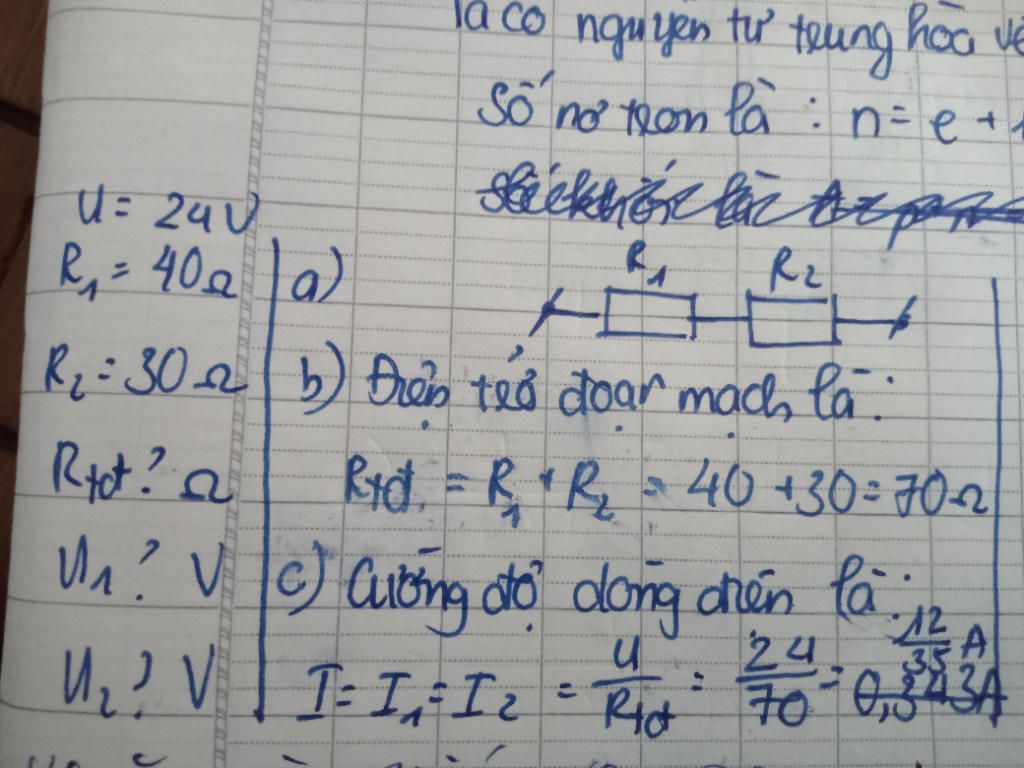 Ta có nguyên tử trung hòa về
Số nơ tron là : n = e + 1
U = 24V
R1 = 40Ω
R2 = 30Ω
Rtđ? Ω
U1? V
U2? V
a)
R1 R2
b) Điện trở đoạn mạch là:
Rtđ = R1 + R2 = 40 + 30 = 70Ω
c) Cường độ dòng điện là:
I = I1 = I2 = U/Rtđ = 24/70 = 12/35 A
0,343A